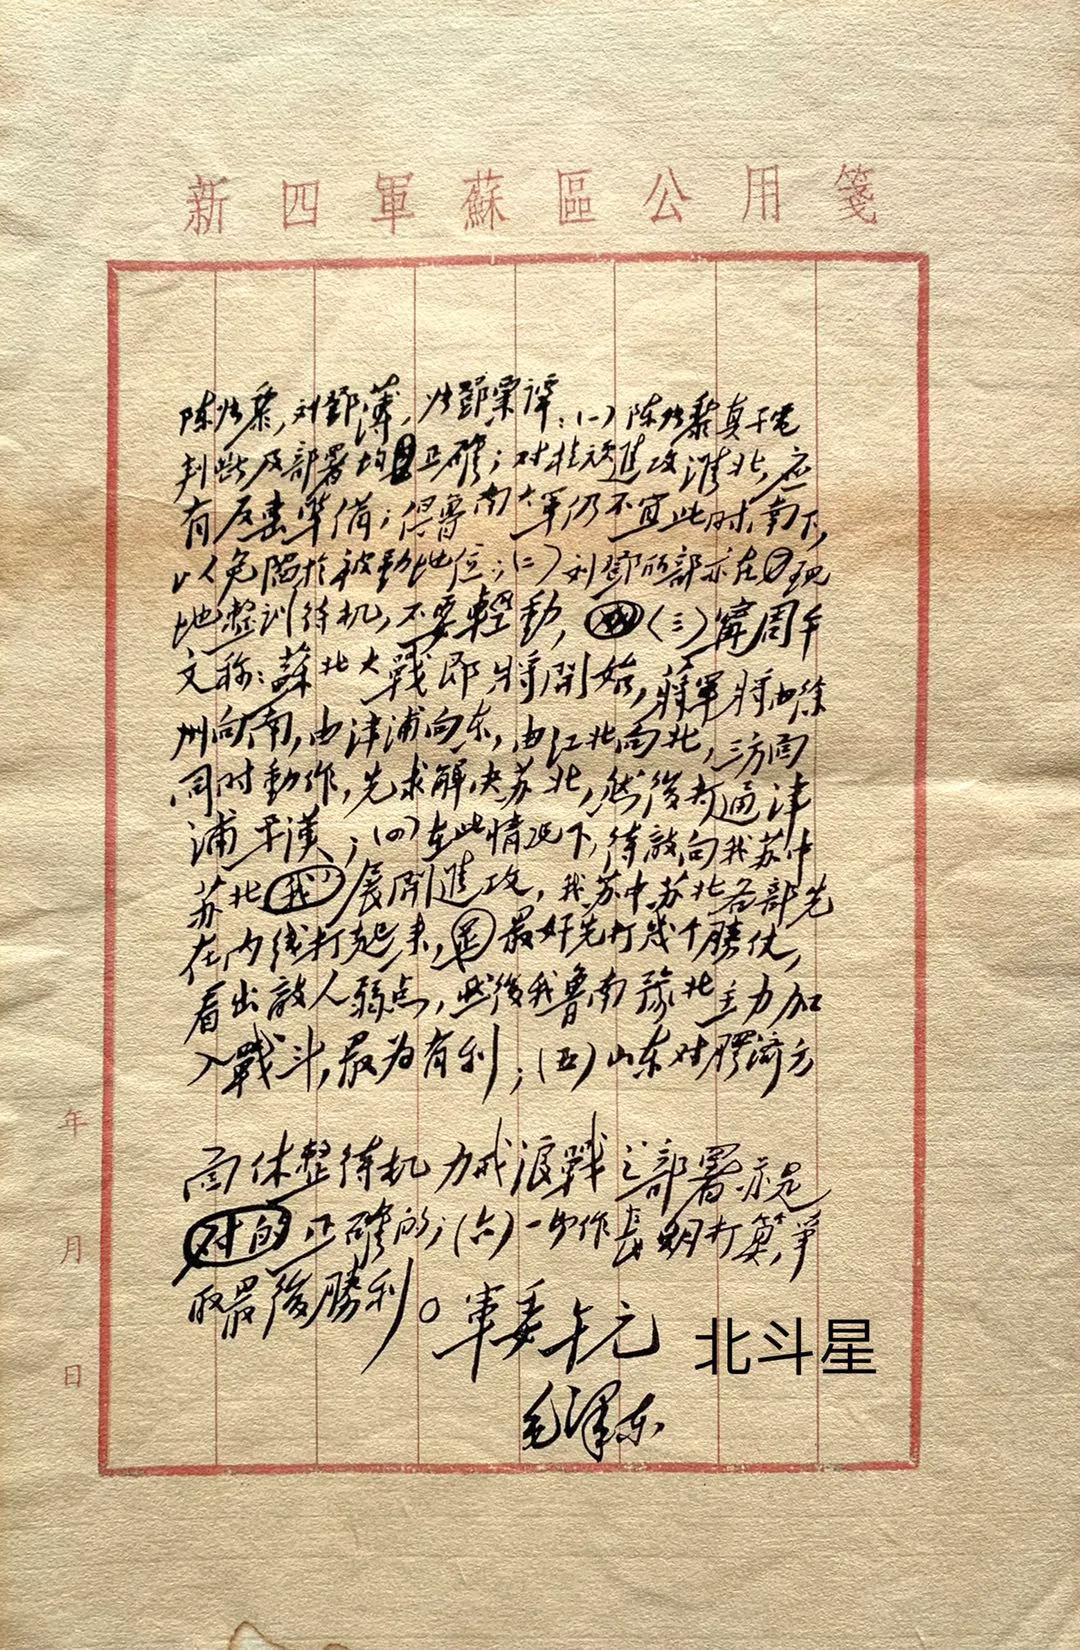 新四軍蘇區公用箋
陈张黎，刘鄧薄，张鄧粟谭：(一)陈张黎真午电
判断及部署均正確；对桂顽進攻淮北，应
有反击準備；但魯南大軍仍不宜此时南下，
以免陷於被動地位；(二)刘鄧所部亦在现
地整训待机，不要輕動，(三)寗周午
文称：蘇北大戰即将開始，蒋軍将由徐
州向南，由津浦向东，由江北向北，三方面
同时動作，先求解决苏北，然後打通津
浦平漢；(四)在此情况下，待敌向我苏中
苏北我展開進攻，我苏中苏北各部先
在内线打起来，是最好先打幾个勝仗，
看出敌人弱点，然後我魯南豫北主力加
入戰斗，最为有利；(五)山东对膠济方
面休整待机力戒浪戰之部署亦是
对的正確的；(六)一切作長期打算，爭
取最後勝利。軍委午元
毛澤东
北斗星
年
月
日